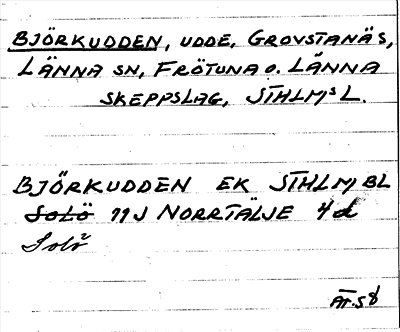 BJÖRKUDDEN, UDDE, GROVSTANÄS,
LÄNNA SN, FRÖTUNA O. LÄNNA
SKEPPSLAG, STHLMS L.
BJÖRKUDDEN EK STHLM BL
Solö 11J NORRTÄLJE 4d
Solö
ÄT. 58